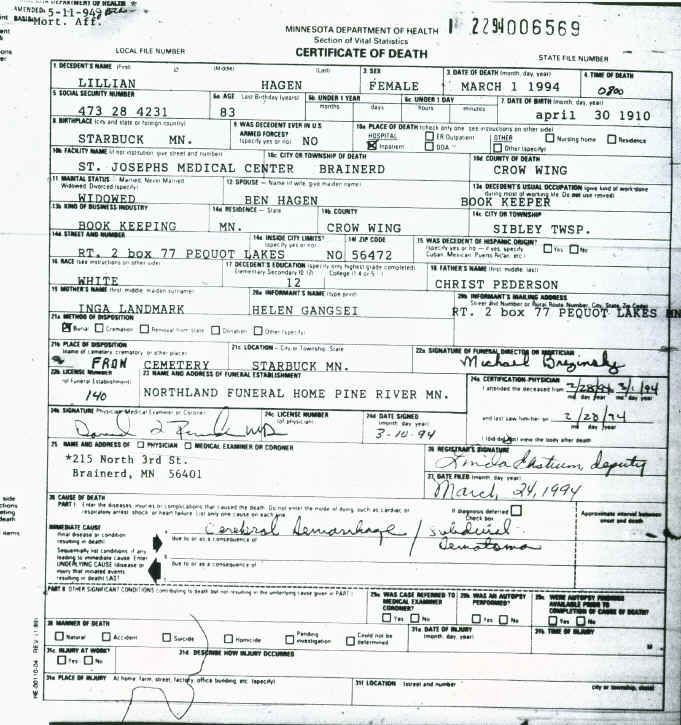 MINNESOTA DEPARTMENT OF HEALTH
Section of Vital Statistics
CERTIFICATE OF DEATH
2294006569
AMENDED 5-11-949
Mort. Aff.
LOCAL FILE NUMBER
STATE FILE NUMBER
1 DECEDENT'S NAME (First) (Middle) (Last)
LILLIAN HAGEN
2 SEX
FEMALE
3. DATE OF DEATH (month, day, year)
MARCH 1 1994
4. TIME OF DEATH
0800
5 SOCIAL SECURITY NUMBER
473 28 4231
6a AGE Last Birthday (years)
83
6b UNDER 1 YEAR
months days
6c UNDER 1 DAY
hours minutes
7. DATE OF BIRTH (month, day, year)
april 30 1910
8 BIRTHPLACE (city and state or foreign country)
STARBUCK MN.
9 WAS DECEDENT EVER IN U.S. ARMED FORCES?
(specify yes or no) NO
10a PLACE OF DEATH (check only one see instructions on other side)
HOSPITAL
Inpatient
ER Outpatient
DOA
OTHER
Nursing home
Residence
Other (specify)
10b FACILITY NAME (if not institution, give street and number)
ST. JOSEPHS MEDICAL CENTER
10c CITY OR TOWNSHIP OF DEATH
BRAINERD
10d COUNTY OF DEATH
CROW WING
11 MARITAL STATUS Married, Never Married
Widowed Divorced (specify)
WIDOWED
12 SPOUSE - Name (if wife, give maiden name)
BEN HAGEN
13a DECEDENT'S USUAL OCCUPATION (give kind of work done
during most of working life. Do not use retired)
BOOK KEEPER
13b KIND OF BUSINESS INDUSTRY
BOOK KEEPING
14a RESIDENCE - State
MN.
14b COUNTY
CROW WING
14c CITY OR TOWNSHIP
SIBLEY TWSP.
14d STREET AND NUMBER
RT. 2 box 77 PEQUOT LAKES
14e INSIDE CITY LIMITS?
(specify yes or no)
NO
14f ZIP CODE
56472
15 WAS DECEDENT OF HISPANIC ORIGIN?
(specify yes or no - if yes, specify
Cuban, Mexican, Puerto Rican, etc.)
Yes No
16. RACE (see instructions on other side)
WHITE
17 DECEDENT'S EDUCATION (specify only highest grade completed)
Elementary Secondary (0 12) College (1 4 or 5+)
12
18 FATHER'S NAME (first, middle, last)
CHRIST PEDERSON
19 MOTHER'S NAME (first, middle, maiden surname)
INGA LANDMARK
20a INFORMANT'S NAME (type print)
HELEN GANGSEI
20b INFORMANT'S MAILING ADDRESS
Street and Number or Rural Route Number, City, State, Zip Code)
RT. 2 box 77 PEQUOT LAKES MN
21a METHOD OF DISPOSITION
Burial Cremation Removal from state Donation Other (specify)
21b PLACE OF DISPOSITION
(name of cemetery, crematory or other place)
FRON CEMETERY
21c LOCATION - City or Township, State
STARBUCK MN.
22a SIGNATURE OF FUNERAL DIRECTOR OR MORTICIAN
Michael Brezinsky
22b LICENSE NUMBER
(of Funeral Establishment)
140
23 NAME AND ADDRESS OF FUNERAL ESTABLISHMENT
NORTHLAND FUNERAL HOME PINE RIVER MN.
24a CERTIFICATION-PHYSICIAN
I attended the deceased from 2/28/94 3/1/94
mo day year mo day year
and last saw him/her on 2/28/94
mo day year
I did did not view the body after death
24b SIGNATURE Physician Medical Examiner or Coroner
24c LICENSE NUMBER
(of physician)
24d DATE SIGNED
(month day year)
3-10-94
25 NAME AND ADDRESS OF PHYSICIAN MEDICAL EXAMINER OR CORONER
*215 North 3rd St.
Brainerd, MN 56401
26 REGISTRAR'S SIGNATURE
deputy
27. DATE FILED (month, day, year)
March 24, 1994
28 CAUSE OF DEATH
PART I Enter the diseases, injuries or complications that caused the death. Do not enter the mode of dying, such as cardiac or
respiratory arrest, shock, or heart failure. List only one cause on each line
If diagnosis deferred
Check box
Approximate interval between
onset and death
IMMEDIATE CAUSE
(final disease or condition
resulting in death)
Cerebral Hemorrhage / subdural
Hematoma
due to or as a consequence of
Sequentially list conditions, if any
leading to immediate cause. Enter
UNDERLYING CAUSE (disease or
injury that initiated events
resulting in death) LAST
due to or as a consequence of
PART II OTHER SIGNIFICANT CONDITIONS contributing to death but not resulting in the underlying cause given in PART I
29a WAS CASE REFERRED TO
MEDICAL EXAMINER
CORONER?
Yes No
29b WAS AN AUTOPSY
PERFORMED?
Yes No
29c WERE AUTOPSY FINDINGS
AVAILABLE PRIOR TO
COMPLETION OF CAUSE OF DEATH?
Yes No
30 MANNER OF DEATH
Natural Accident Suicide Homicide Pending investigation Could not be determined
31a DATE OF INJURY
(month, day, year)
31b TIME OF INJURY
M
31c INJURY AT WORK?
Yes No
31d DESCRIBE HOW INJURY OCCURRED
31e PLACE OF INJURY At home, farm, street, factory, office building, etc. (specify)
31f LOCATION (street and number
city or township, state)